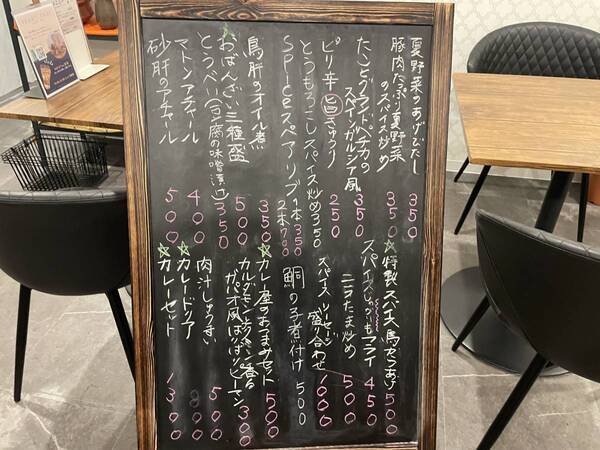 夏野菜のあげびたし 350
豚肉たっぷり夏野菜
のスパイス炒め 350
たことフライドポテトの
スペイン ガルシア風 350
ピリ辛旨きゅうり 250
とうもろこしスパイス炒め 350
SPiceスペアリブ 1本 350
2本 700
鳥肝のオイル煮 350
☆おばんざい三種盛 500
とうべー(豆腐の味噌漬) 350
マトンアチャール 400
砂肝のアチャール 500
☆特製スパイス鳥からあげ 500
スパイスじゃがいもフライ 450
ニラたま炒め 500
スパイスソーセージ
盛り合わせ 1000
鯛の子煮付け 500
☆カレー屋のおつまみセット 500
カルダモンとクミン香る
ガパオ風ぱりぱりピーマン 300
肉汁しゅうまい 500
☆カレードリア 800
☆カレーセット 1300